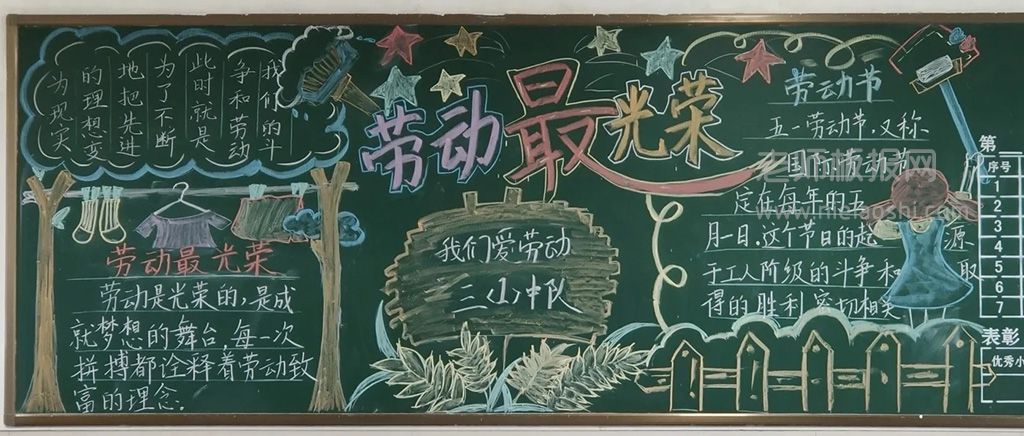 我们的斗
争和劳动
此时就是
为了不断
地把先进
的理想变
为现实
劳动最光荣
劳动最光荣
劳动是光荣的,是成
就梦想的舞台,每一次
拼搏都诠释着劳动致
富的理念.
我们爱劳动
三〈1〉中队
劳动节
五一劳动节,又称
国
定在每年的五
月一日.这个节日的起源
于工人阶级的斗争和取
得的胜利密切相关
老师板报网
第
序号
1
2
3
4
5
6
7
表彰
优秀小